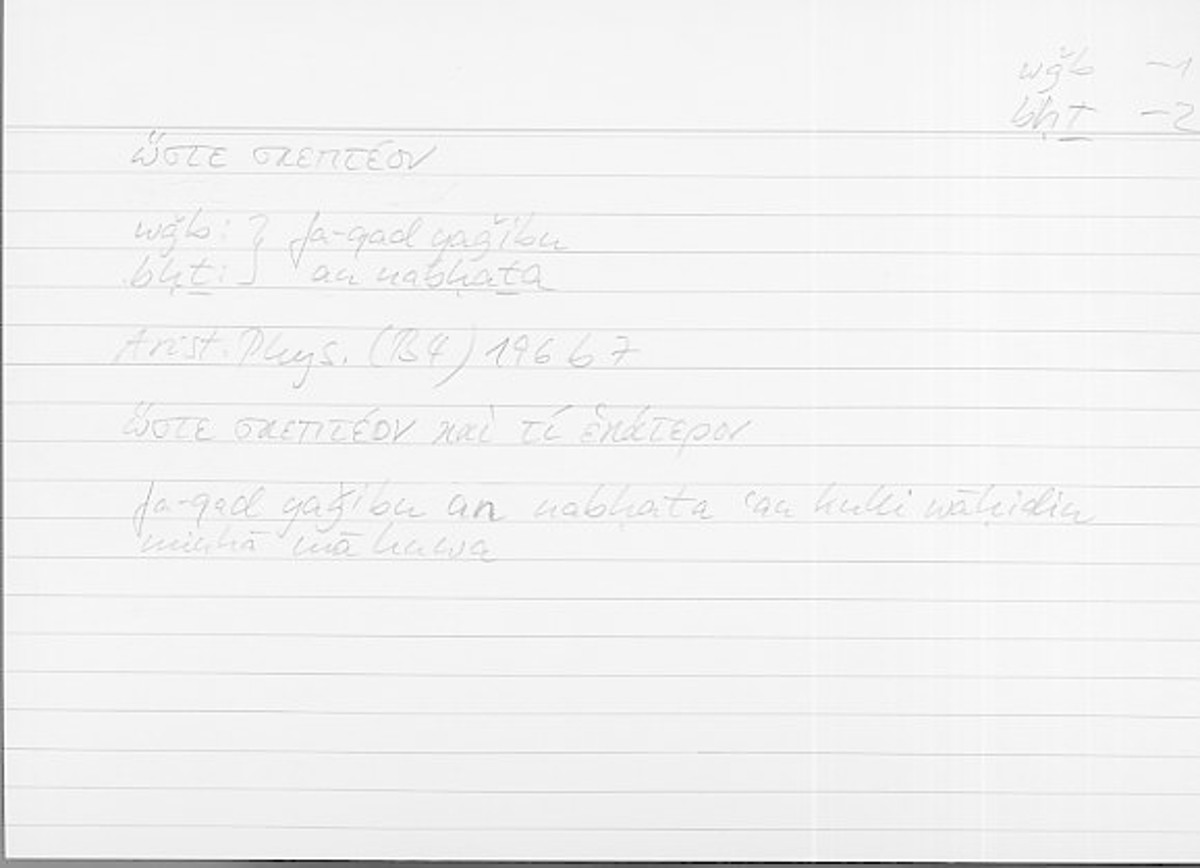 wǧb –1
bḥṯ –2
ὥστε σκεπτέον
wǧb: } fa-qad yaǧibu
bḥṯ: } an nabḥaṯa
Arist. Phys. (B4) 196 b 7
ὥστε σκεπτέον καὶ τί ἑκάτερον
fa-qad yaǧibu an nabḥata ʿan kulli wāḥidin
minhā mā huwa